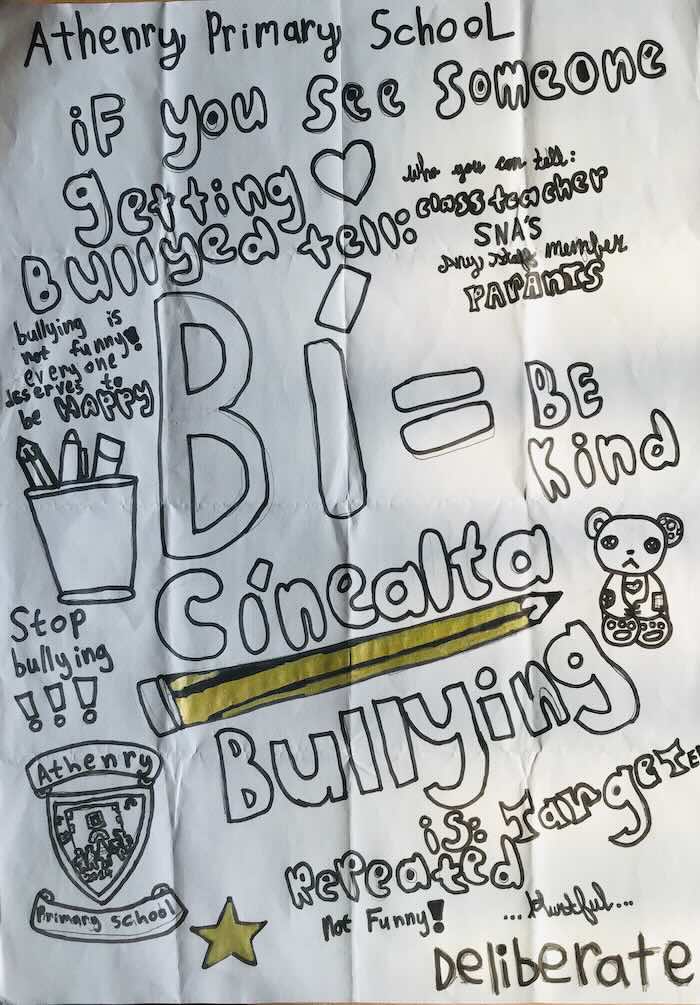 Athenry Primary School
if you see someone
getting
Bullyed tell:
who you can tell:
class teacher
SNA'S
Any staff member
PARANTS
bullying is
not funny!
everyone
deserves to
be HAPPY
Bí = BE
Kind
Cínealta
Stop
bullying
!!!
Bullying
is: Targeted
Repeated
Not Funny!
...Hurtful...
Deliberate
Athenry
2014
Primary School